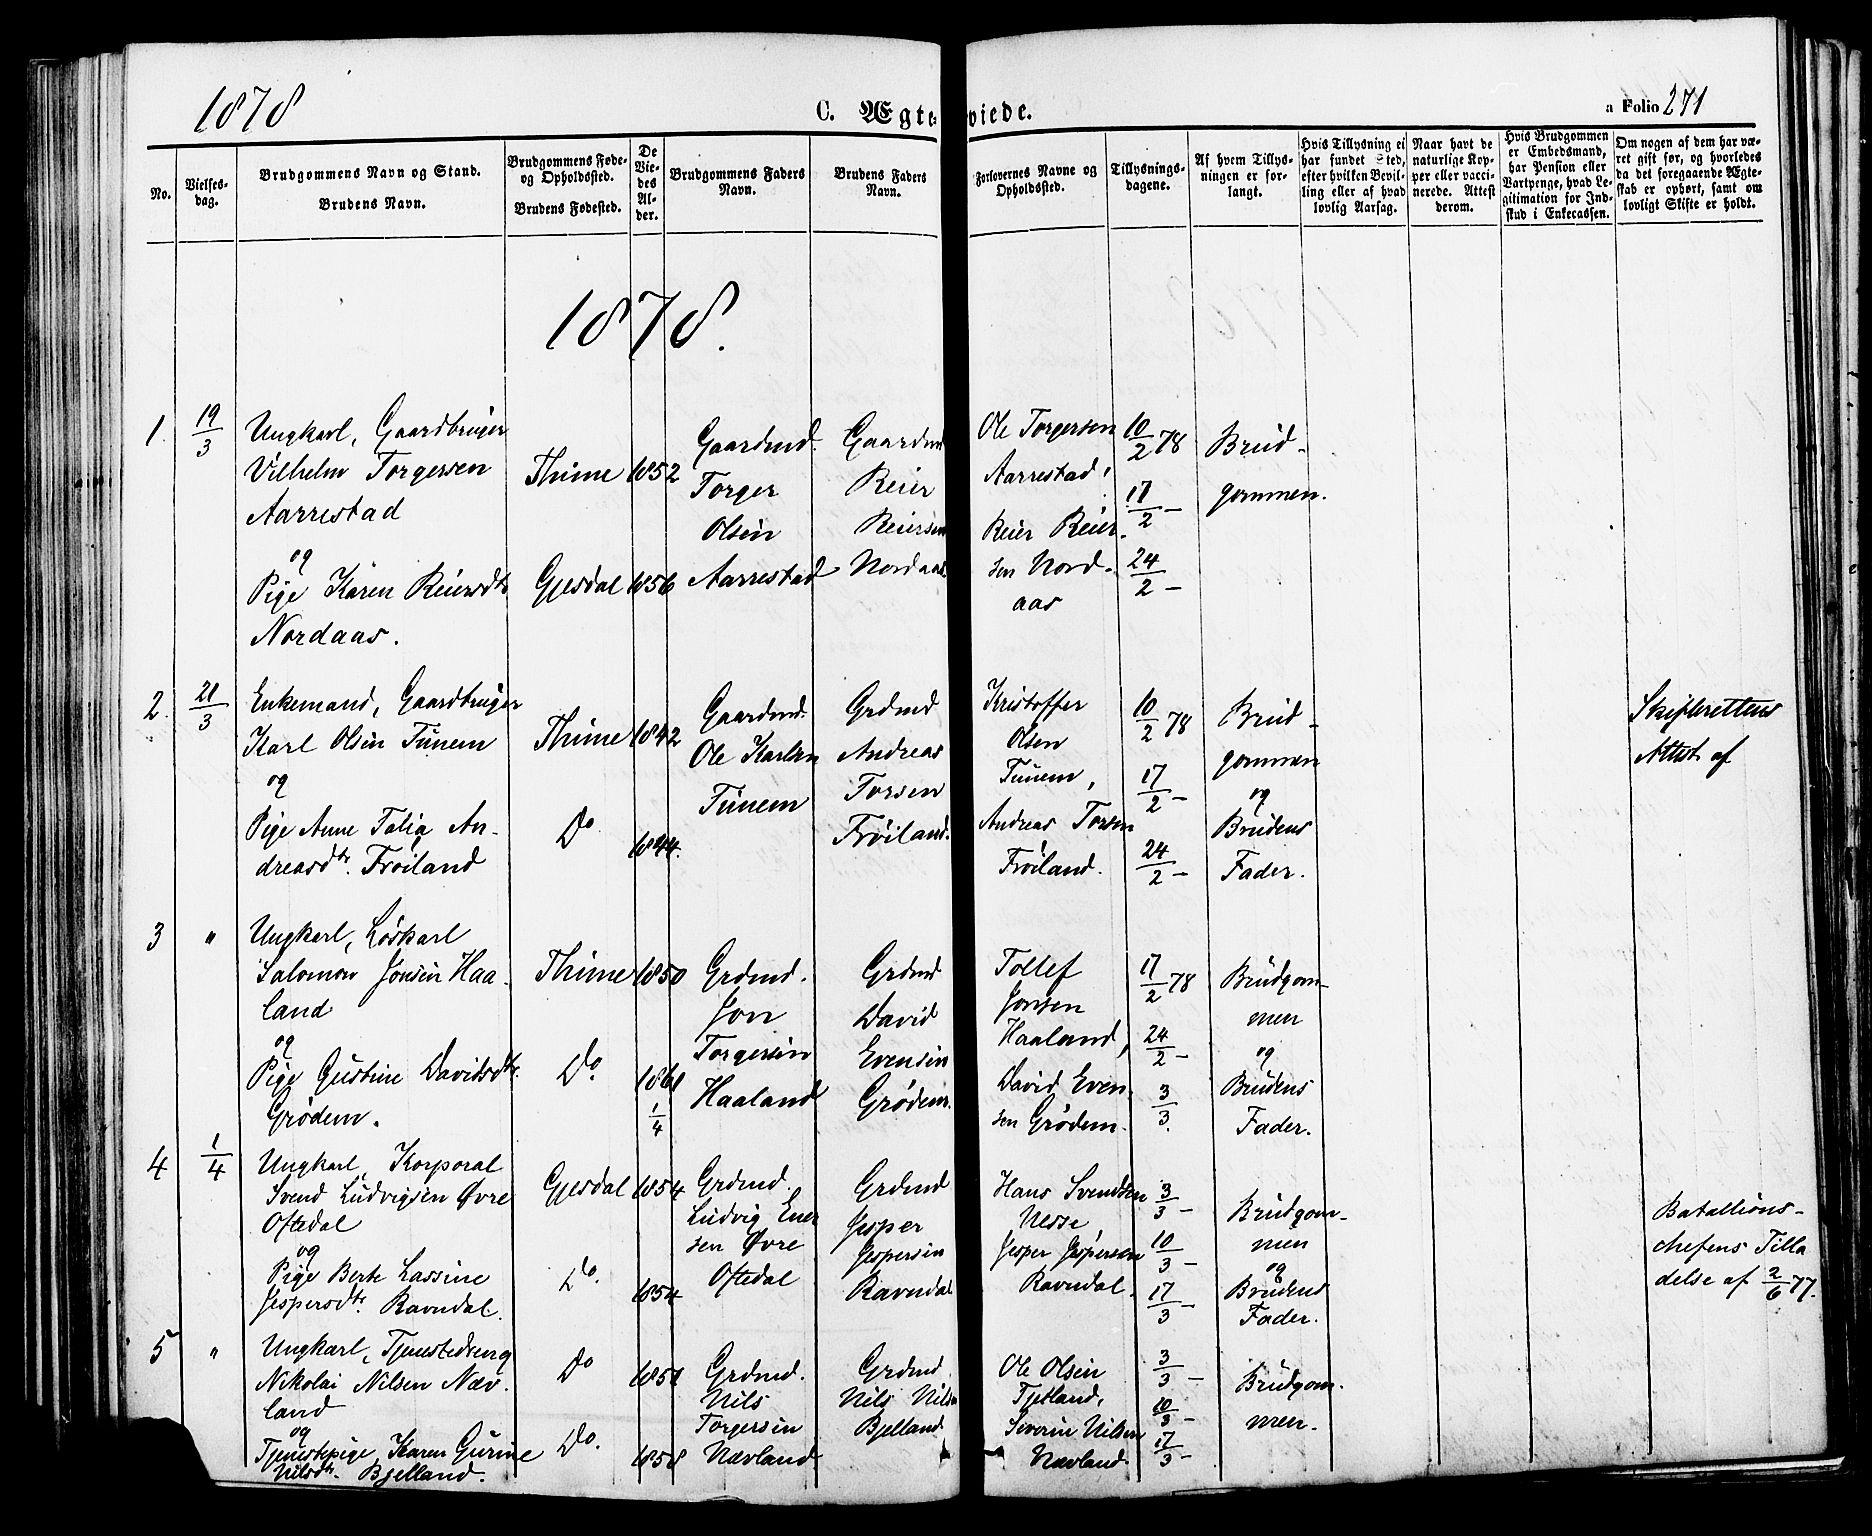 1878
C. Ægteviede.
a Folio 271
No.
Vielses-
dag.
Brudgommens Navn og Stand.
Brudens Navn.
Brudgommens Føde-
og Opholdssted.
Brudens Fødested.
De
Vie-
des
Al-
der.
Brudgommens Faders
Navn.
Brudens Faders
Navn.
Forlovernes Navne og
Opholdssted.
Tillysnings-
dagene.
Af hvem Tillys-
ningen er for-
langt.
Hvis Tillysning ei
har fundet Sted,
efter hvilken Bevil-
ling eller af hvad
lovlig Aarsag.
Naar havt de
naturlige Kop-
per eller vacci-
nerede. Attest
derom.
Hvis Brudgommen
er Embedsmand,
har Pension eller
Vartpenge, hvad Le-
gitimation for Ind-
skud i Enkecassen.
Om nogen af dem har væ-
ret gift før, og hvorledes
da det foregaaende Ægte-
skab er ophørt, samt om
lovligt Skifte er holdt.
1878.
1.
19/3
Ungkarl, Gaardbruger
Vilhelm Torgersen
Aarrestad
og
Pige Karen Reiersdtr
Nordaas.
Thime
Gjesdal
1852
1856
Gaardmd.
Torger
Olsen
Aarrestad
Gaardmd
Reier
Reiersen
Nordaas
Ole Torgersen
Aarrestad,
Reier Reier-
sen Nord-
aas
10/2 78
17/2 -
24/2 -
Brud-
gommen.
2.
21/3
Enkemand, Gaardbruger
Karl Olsen Tunem
og
Pige Anne Talig An-
dreasdtr. Frøiland
Thime
Do
1842
1844.
Gaardmd.
Ole Karlsen
Tunem
Grdmd
Andreas
Torsen
Frøiland.
Kristoffer
Olsen
Tunem,
Andreas Torsen
Frøiland.
10/2 78
17/2 -
24/2 -
Brud-
gommen
og
Brudens
Fader.
Skifterettens
Attest af
3
"
Ungkarl, Løskarl
Salomon Jonsen Haa-
land
og
Pige Gustine Davidsdtr.
Grødem.
Thime
Do.
1850
1861
1/4
Grdmd.
Jon
Torgersen
Haaland
Grdmd
David
Evensen
Grødem.
Tollef
Jonsen
Haaland,
David Even-
sen Grødem.
17/2 78
24/2 -
3/3.
Brudgom-
men
og
Brudens
Fader.
4
1/4
Ungkarl, Korporal
Svend Ludvigsen Øvre
Oftedal
og
Pige Berte Lassine
Jespersdtr. Ravndal.
Gjesdal
Do.
1854
1854
Grdmd.
Ludvig Ener
sen Øvre
Oftedal
Grdmd
Jesper
Jespersen
Ravndal
Hans Svendsen
Nesse,
Jesper Jespersen
Ravndal.
3/3 -
10/3 -
17/3 -
Brudgom-
men
og
Brudens
Fader.
Bataillons-
chefens Tilla
delse af 2/6 77.
5
"
Ungkarl, Tjenestedreng
Nikolai Nilsen Næv-
land
og
Tjenestepige, Karen Gurine
Nilsdtr. Bjelland.
Do
Do.
1851
1858
Grdmd.
Nils
Torgersen
Nævland
Grdmd,
Nils Nilsen
Bjelland
Ole Olsen
Tjetland,
Severin Nilsen
Nævland.
3/3 -
10/3 -
17/3 -
Brudgom-
men.